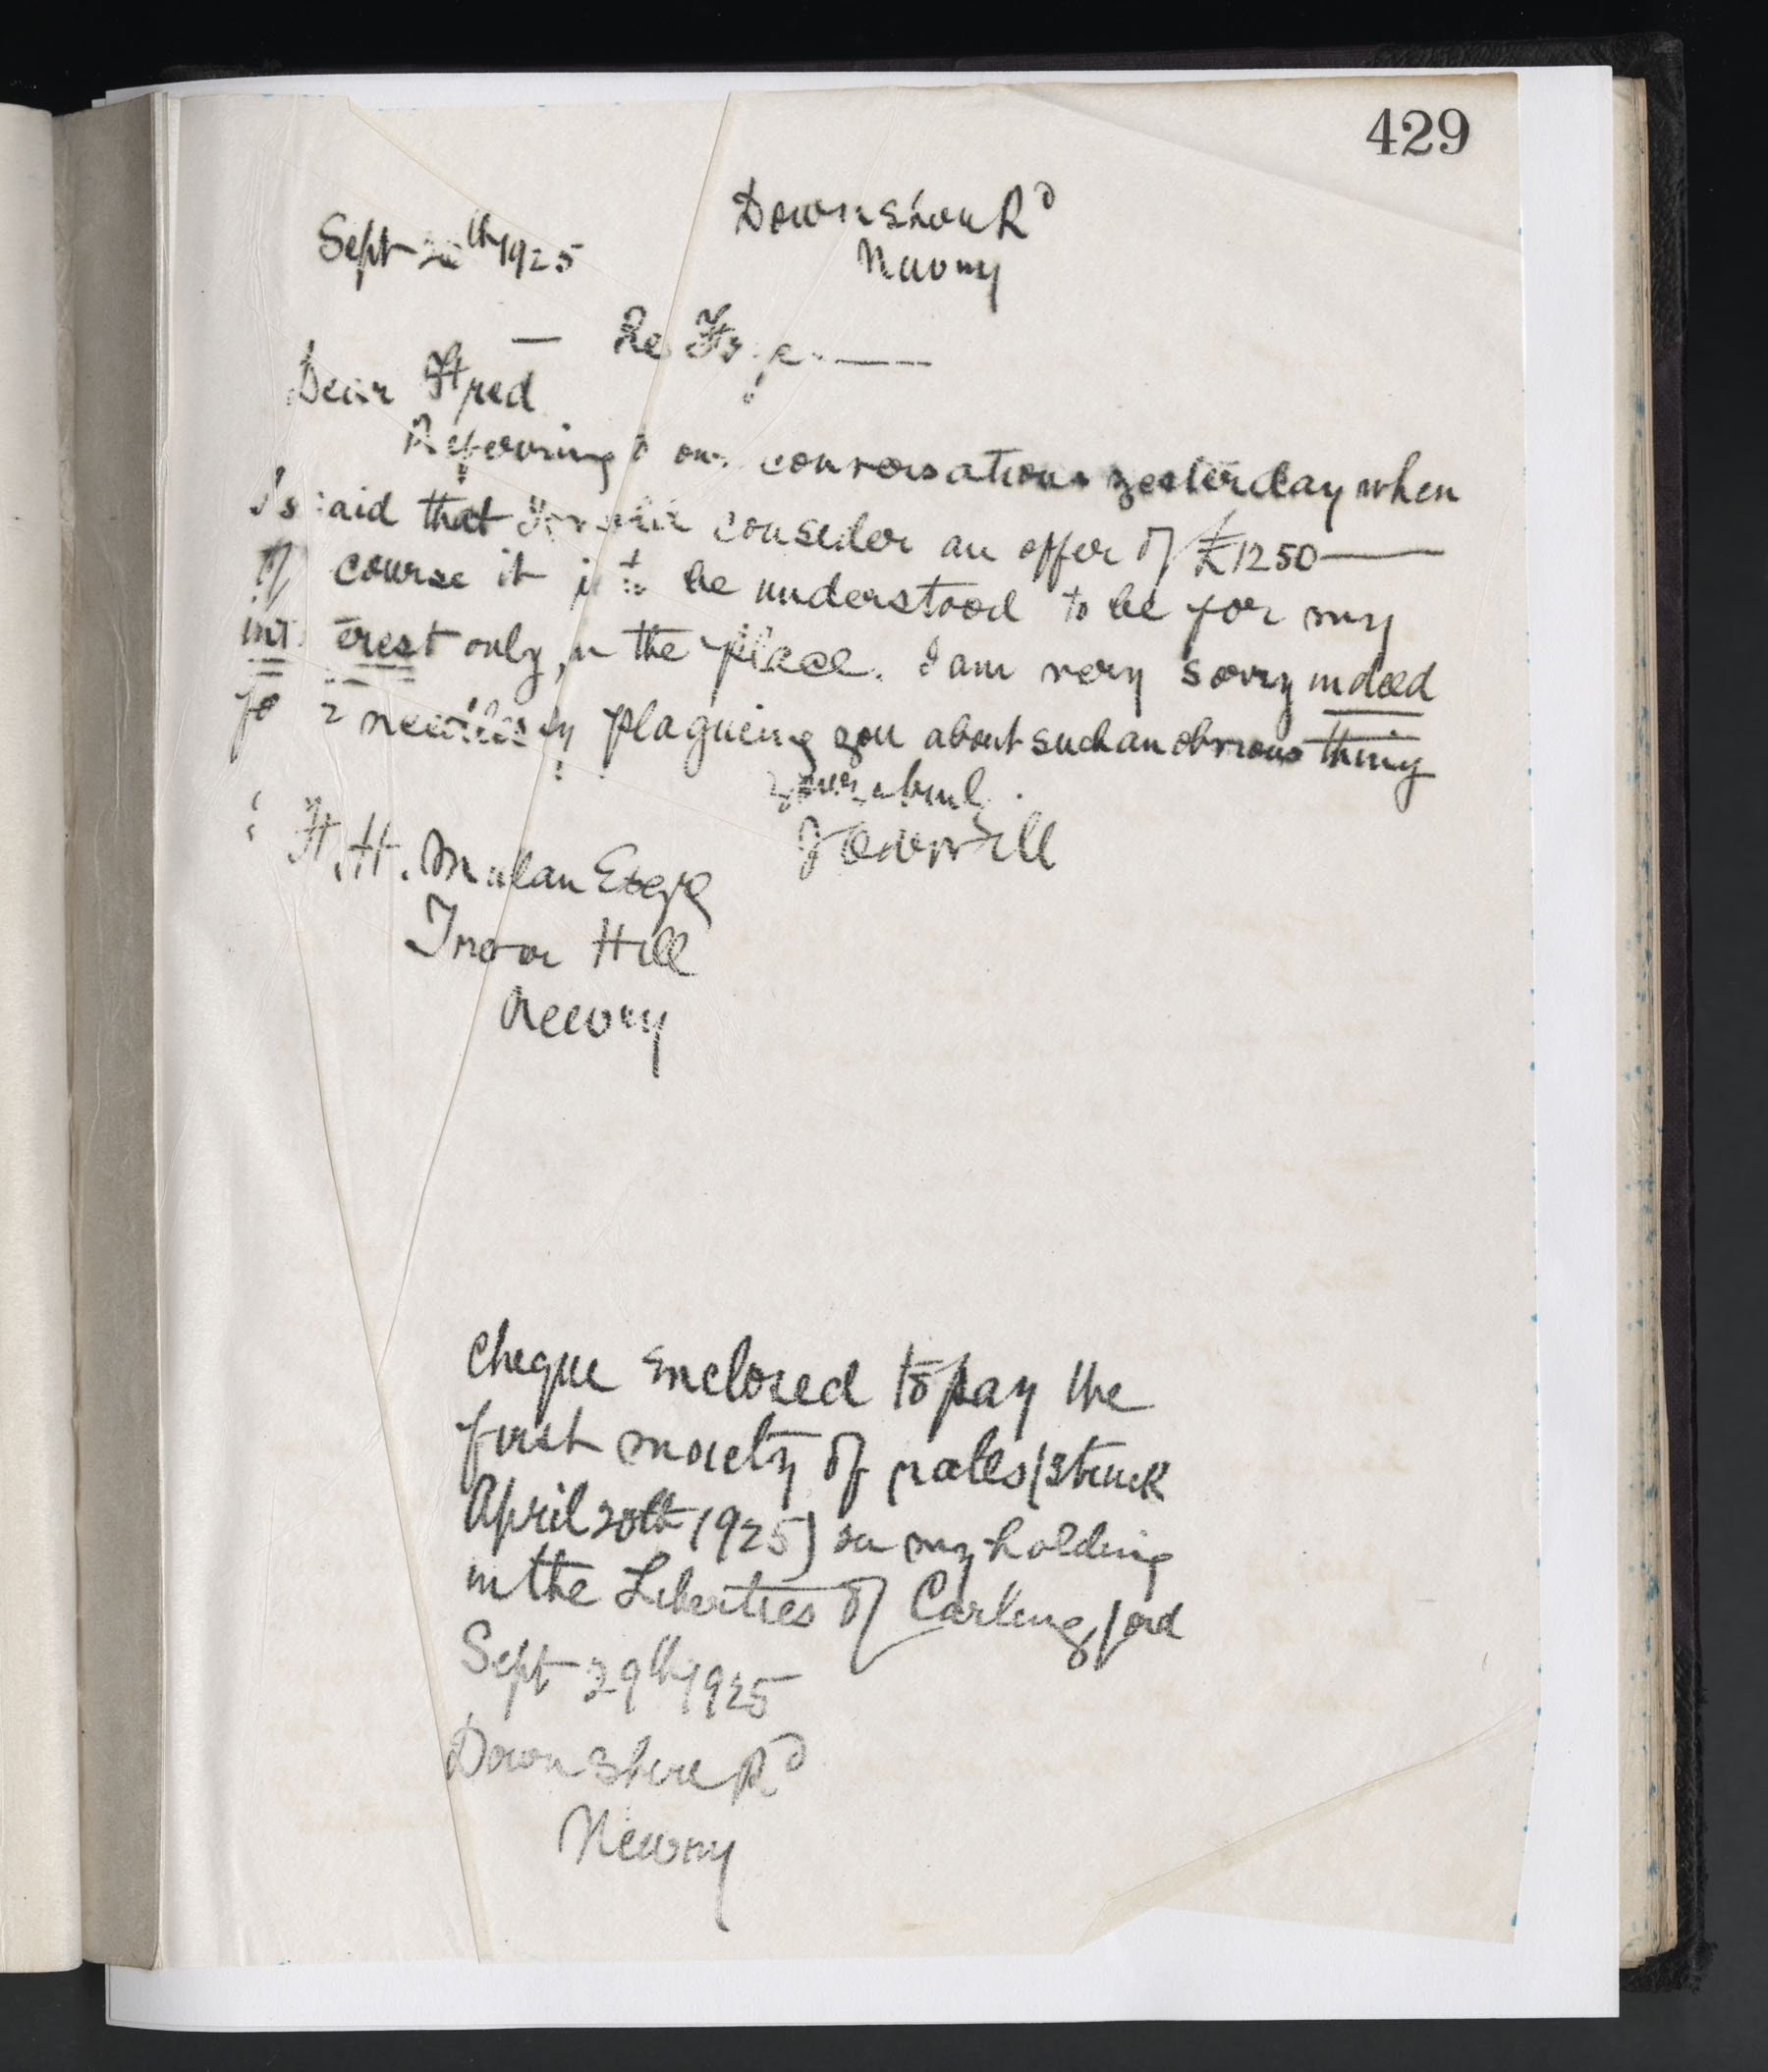 429
Downshire Rd
Newry
Sept th 1925
Re
Dear Fred
Referring to our conversation yesterday when
I said that I would consider an offer of £1250
Of course it is to be understood to be for my
interest only in the place. I am very sorry indeed
for needlessly plaguing you about such an obvious thing
yours
F. H. Mullan Esqre
Trevor Hill
Newry
Cheque enclosed to pay the
first moiety of rates (struck
April 20th 1925) on my holding
in the Liberties of Carlingford
Sept 29th 1925
Downshire Rd
Newry